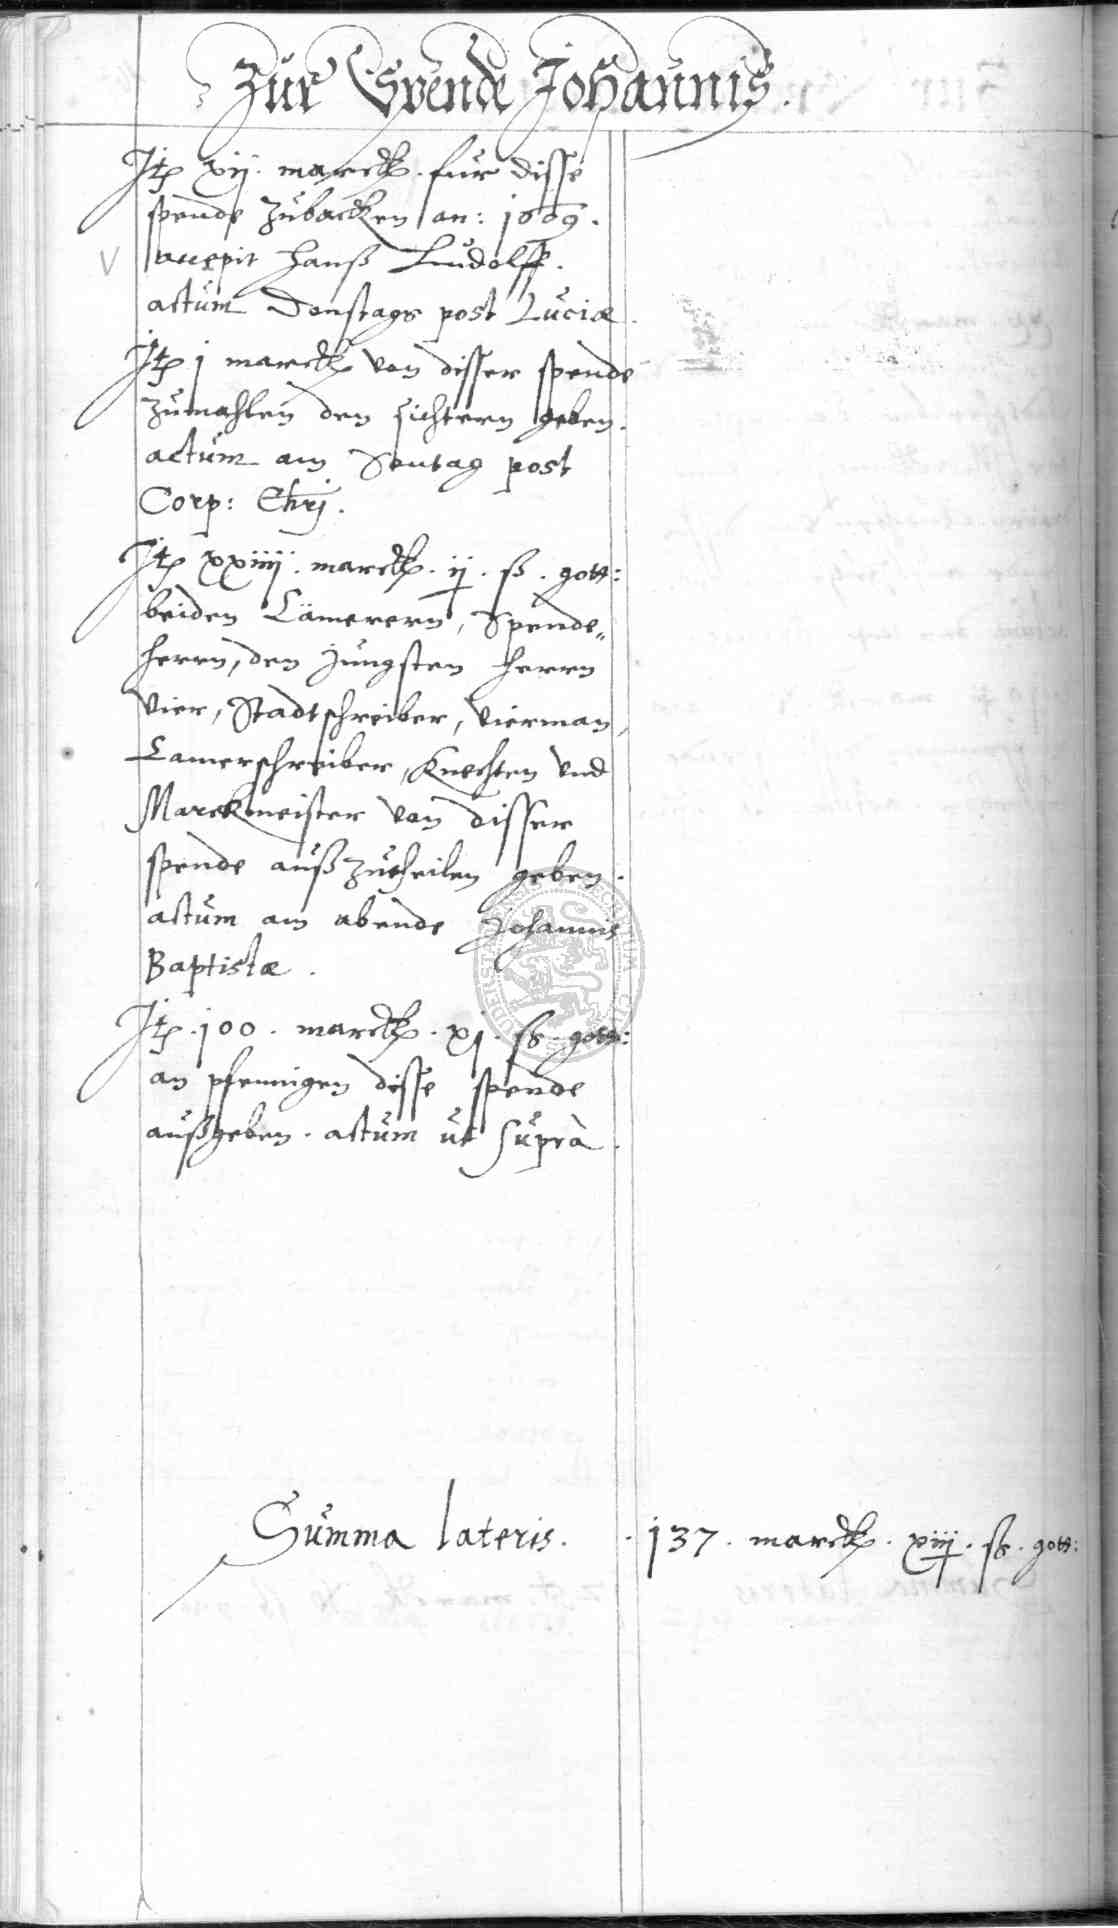 Zur Spende Johannis.
Itē xij. marck. fur disse
spende zubacken an: 1609.
accepit Hanß Ludolff.
actum Donstags post Luciæ.
Itē j marck von disser spende
zumahlen den sichtern geben.
actum am Sontag post
Corp: Chrj.
Itē xxiiij. marck. ij. ß. gott:
beiden Cämerern, Spende-
herrn, den jungsten herrn
vier, Stadtschreiber, vierman,
Camerschreiber, Knechten vnd
Marckmeister von disser
spende außzutheilen geben.
actum am abende Johannis
Baptistæ.
Itē. 100. marck. xj. ß. gott:
an pfennigen disse spende
außgeben. actum ut suprà.
Summa lateris. 137. marck. xiij. ß. gott: